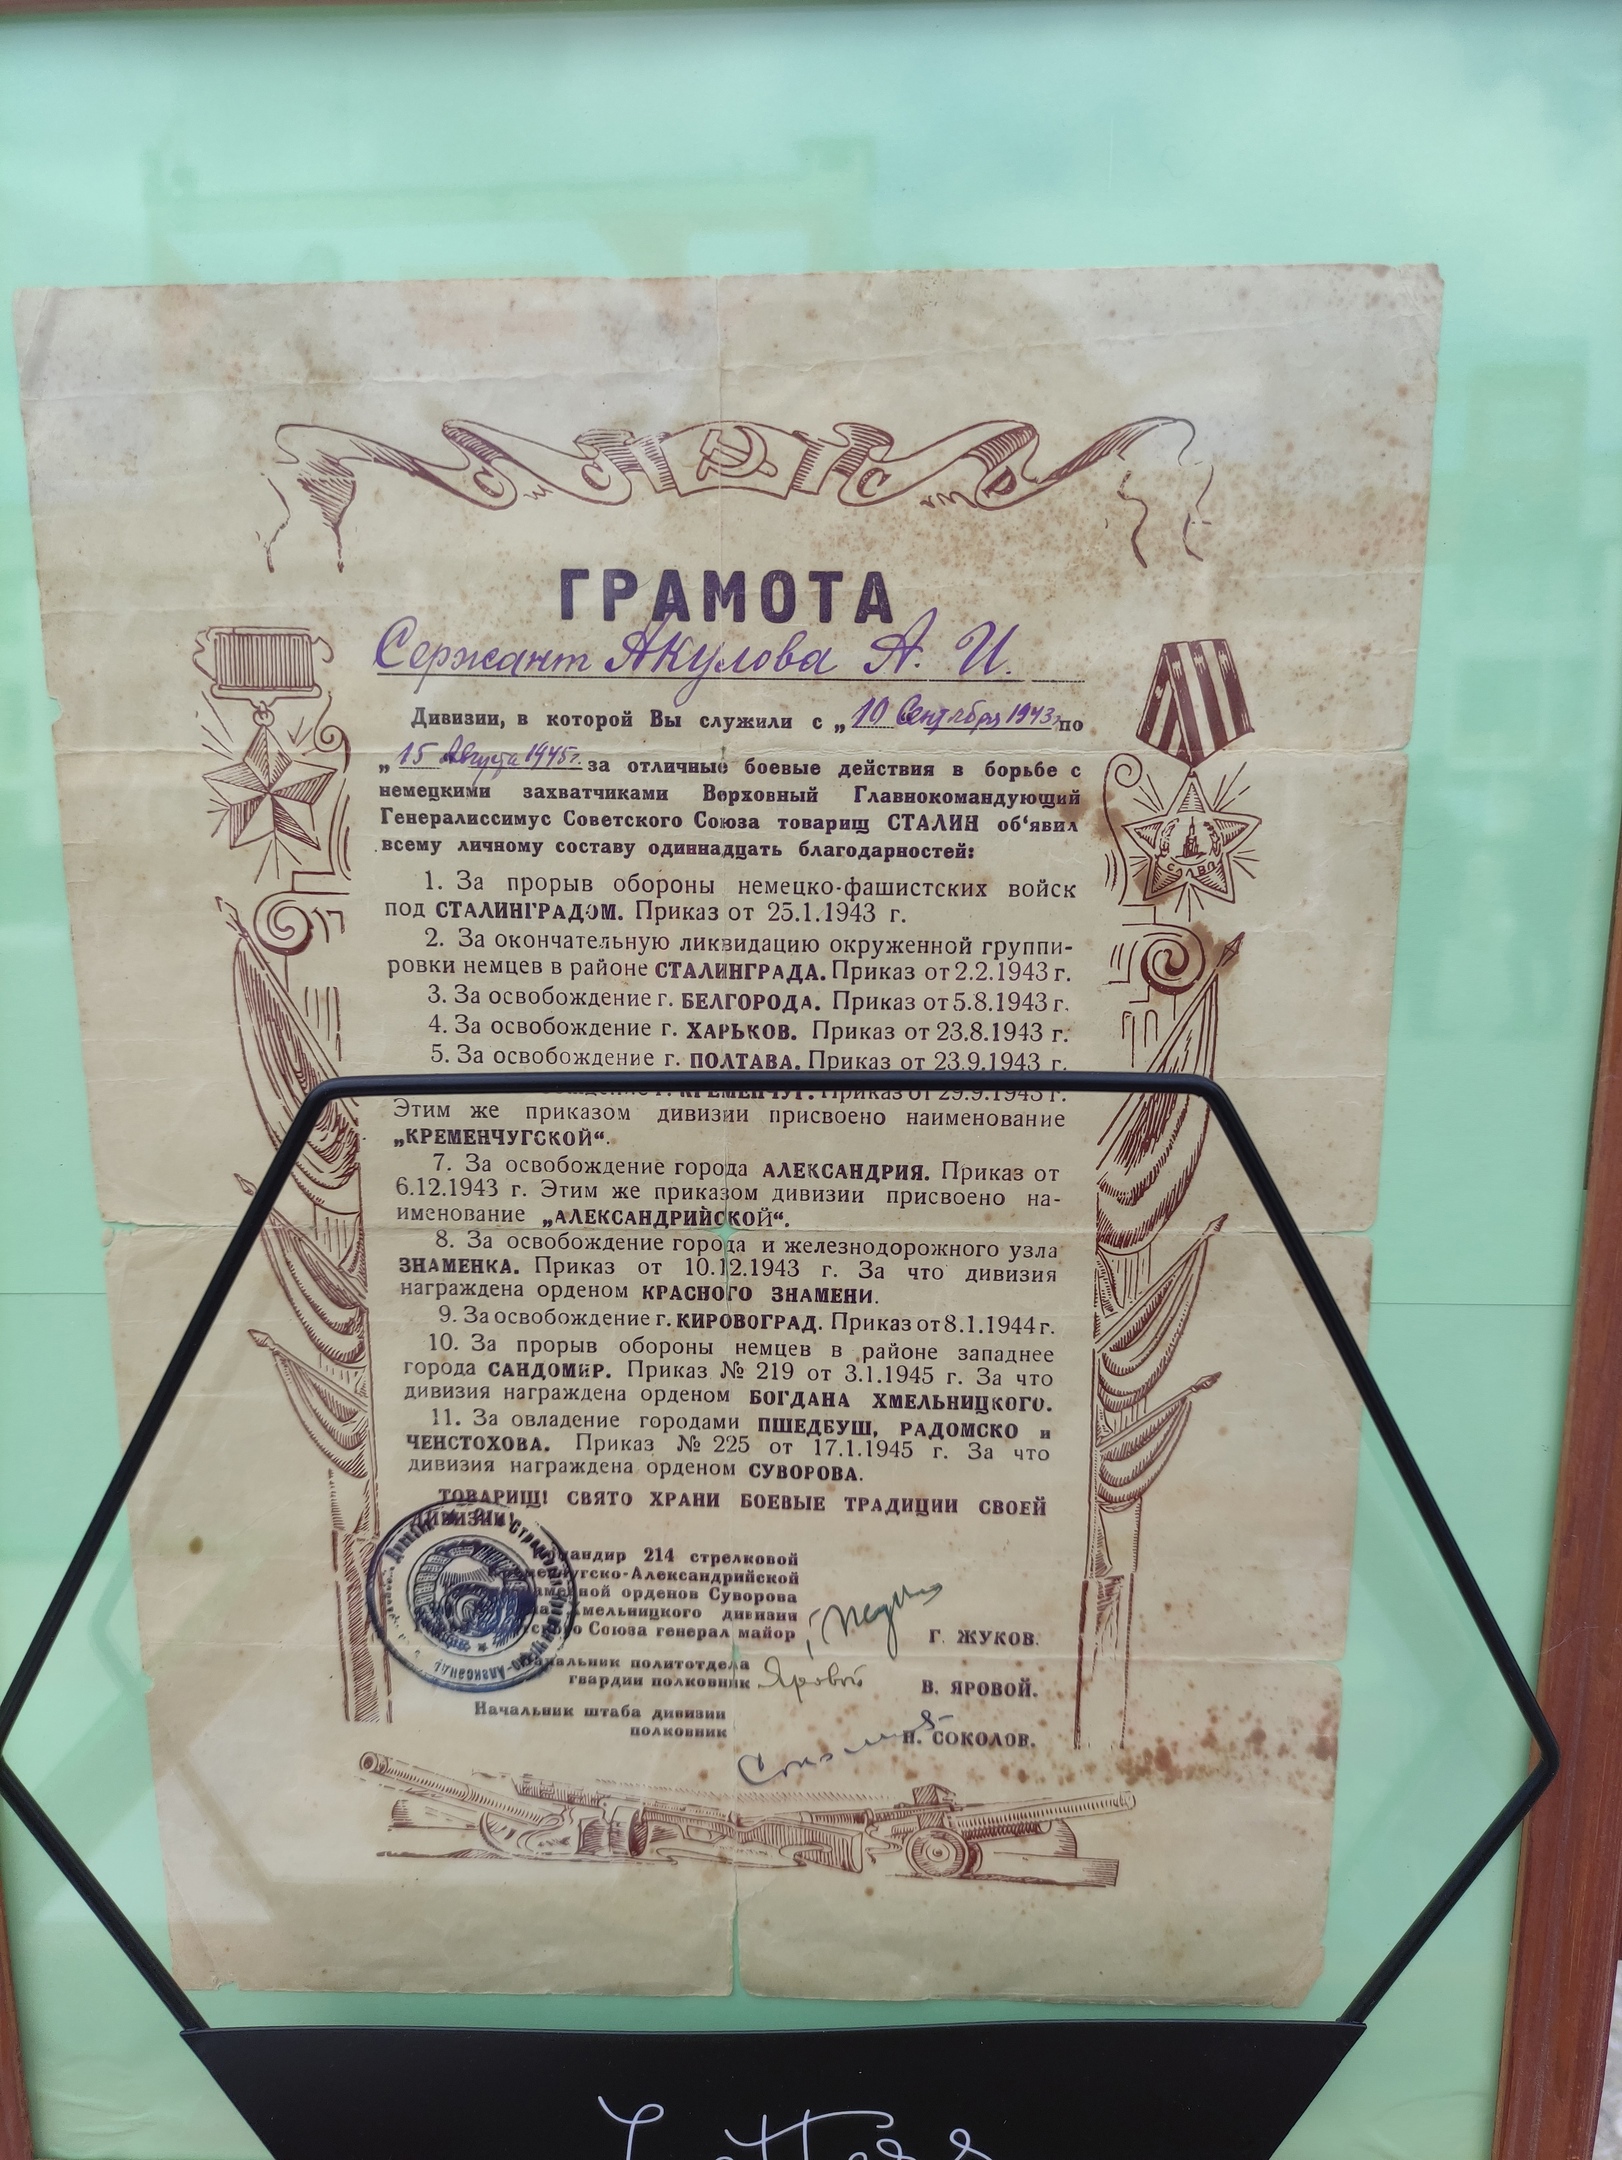 С С С Р
ГРАМОТА
Сержант Акулова А. И.
Дивизии, в которой Вы служили с „10 Сентября 1943г по
„15 Августа 1945г. за отличные боевые действия в борьбе с
немецкими захватчиками Верховный Главнокомандующий
Генералиссимус Советского Союза товарищ СТАЛИН об‘явил
всему личному составу одиннадцать благодарностей:
1. За прорыв обороны немецко-фашистских войск
под СТАЛИНГРАДОМ. Приказ от 25.1.1943 г.
2. За окончательную ликвидацию окруженной группи-
ровки немцев в районе СТАЛИНГРАДА. Приказ от 2.2.1943 г.
3. За освобождение г. БЕЛГОРОДА. Приказ от 5.8.1943 г.
4. За освобождение г. ХАРЬКОВ. Приказ от 23.8.1943 г.
5. За освобождение г. ПОЛТАВА. Приказ от 23.9.1943 г.
г. КРЕМЕНЧУГ. Приказ от 29.9.1943 г.
Этим же приказом дивизии присвоено наименование
„КРЕМЕНЧУГСКОЙ“.
7. За освобождение города АЛЕКСАНДРИЯ. Приказ от
6.12.1943 г. Этим же приказом дивизии присвоено на-
именование „АЛЕКСАНДРИЙСКОЙ“.
8. За освобождение города и железнодорожного узла
ЗНАМЕНКА. Приказ от 10.12.1943 г. За что дивизия
награждена орденом КРАСНОГО ЗНАМЕНИ.
9. За освобождение г. КИРОВОГРАД. Приказ от 8.1.1944 г.
10. За прорыв обороны немцев в районе западнее
города САНДОМИР. Приказ № 219 от 3.1.1945 г. За что
дивизия награждена орденом БОГДАНА ХМЕЛЬНИЦКОГО.
11. За овладение городами ПШЕДБУШ, РАДОМСКО и
ЧЕНСТОХОВА. Приказ № 225 от 17.1.1945 г. За что
дивизия награждена орденом СУВОРОВА.
ТОВАРИЩ! СВЯТО ХРАНИ БОЕВЫЕ ТРАДИЦИИ СВОЕЙ
ДИВИЗИИ!
Командир 214 стрелковой
Кременчугско-Александрийской
орденов Суворова
Хмельницкого дивизии
Союза генерал майор Г. ЖУКОВ.
Начальник политотдела
гвардии полковник Яровой В. ЯРОВОЙ.
Начальник штаба дивизии
полковник Н. СОКОЛОВ.
СЛАВА
Letters